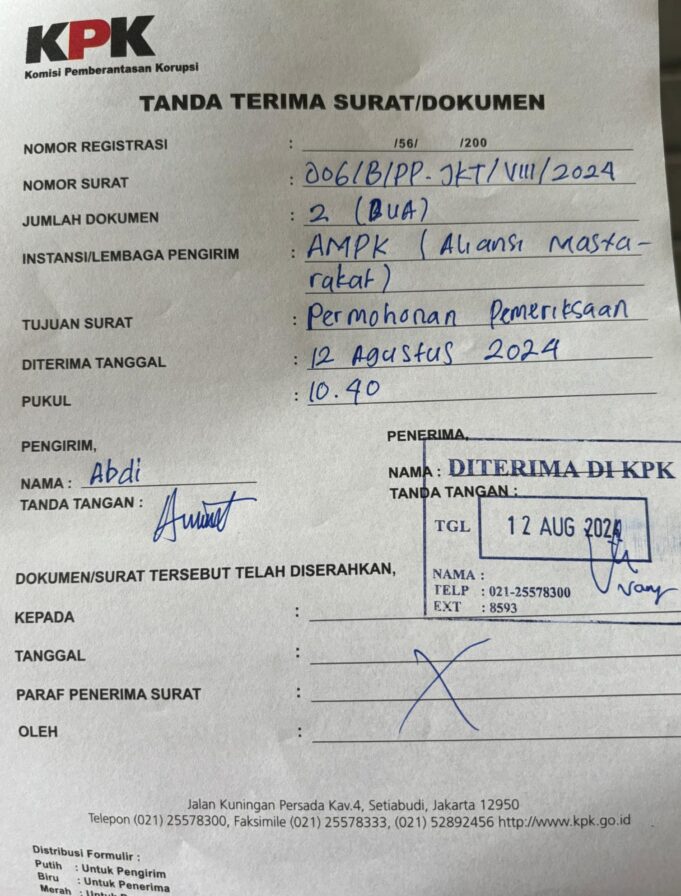 KPK
Komisi Pemberantasan Korupsi
TANDA TERIMA SURAT/DOKUMEN
NOMOR REGISTRASI : /56/ /200
NOMOR SURAT : 006/B/PP-JKT/VIII/2024
JUMLAH DOKUMEN : 2 (DUA)
INSTANSI/LEMBAGA PENGIRIM : AMPK (Aliansi Masta-
rakat)
TUJUAN SURAT : Permohonan Pemeriksaan
DITERIMA TANGGAL : 12 Agustus 2024
PUKUL : 10.40
PENGIRIM,
NAMA : Abdi
TANDA TANGAN :
PENERIMA,
NAMA : DITERIMA DI KPK
TANDA TANGAN :
TGL 12 AUG 2024
NAMA :
TELP : 021-25578300
EXT : 8593
DOKUMEN/SURAT TERSEBUT TELAH DISERAHKAN,
KEPADA :
TANGGAL :
PARAF PENERIMA SURAT :
OLEH :
Jalan Kuningan Persada Kav.4, Setiabudi, Jakarta 12950
Telepon (021) 25578300, Faksimile (021) 25578333, (021) 52892456 http://www.kpk.go.id
Distribusi Formulir :
Putih : Untuk Pengirim
Biru : Untuk Penerima
Merah : Untuk